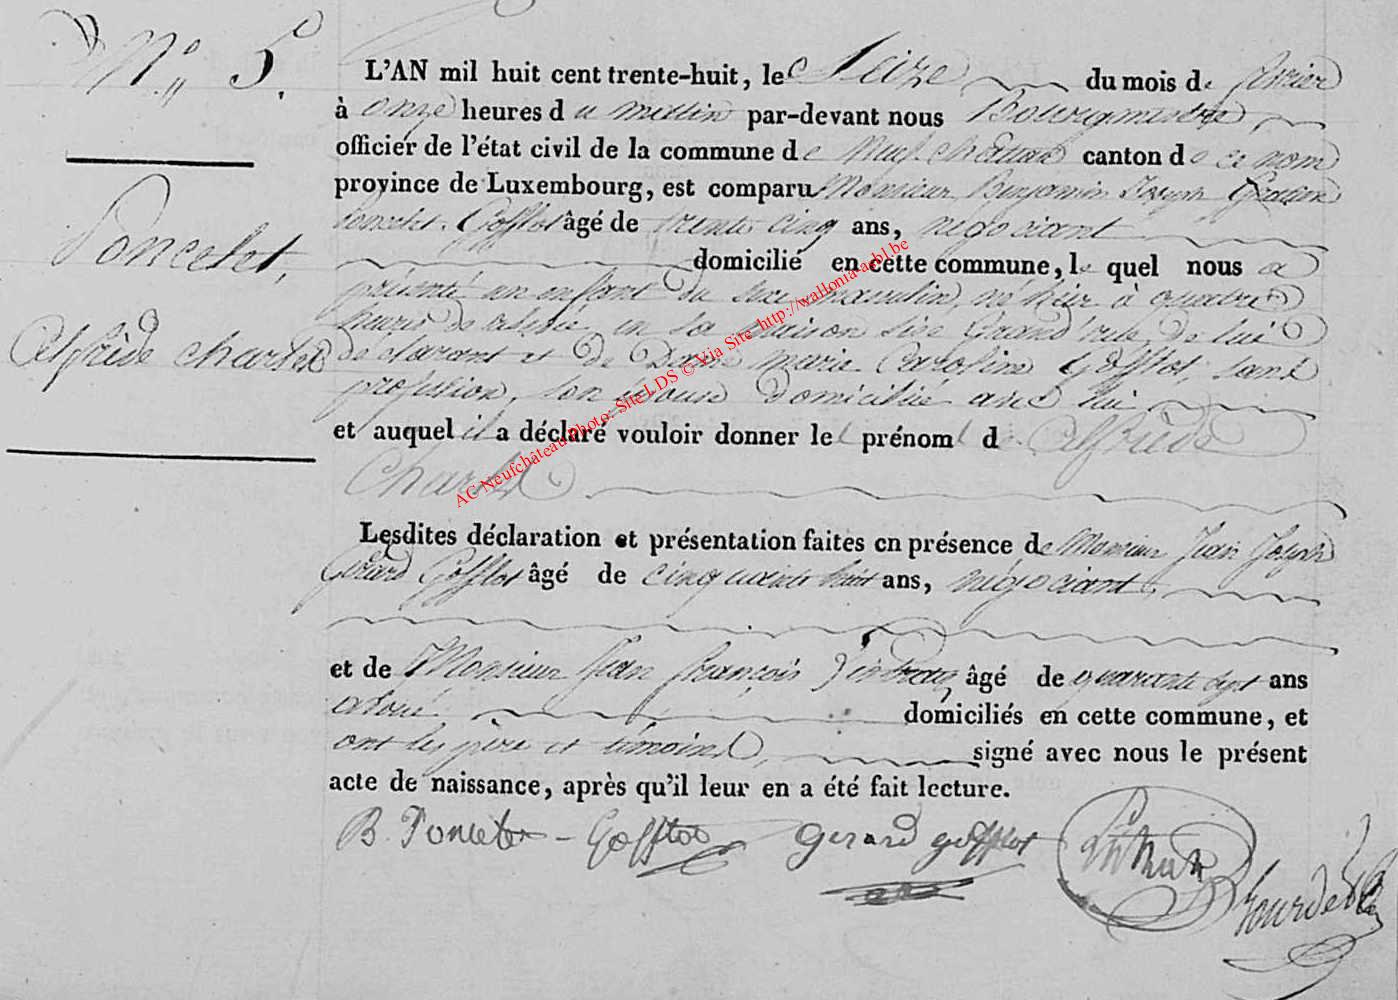 N° 5.
Poncelet,
Alfrède Charles
L'AN mil huit cent trente-huit, le Seize du mois de février
à onze heures du mattin par-devant nous Bourgmestre,
officier de l'état civil de la commune de Neufchâteau canton de ce nom
province de Luxembourg, est comparu Monsieur Benjamin Joseph
Poncelet-Gofflot âgé de trente cinq ans, négociant
domicilié en cette commune, lequel nous a
présenté un enfant du sexe masculin, né hier à quatre
heures de relevée, en sa maison sise Grand'rue, de lui
déclarant et de Dame Marie Caroline Gofflot, sans
profession, son épouse domiciliée avec lui
et auquel il a déclaré vouloir donner le prénom d Alfrède
Charles
Lesdites déclaration et présentation faites en présence de Monsieur Jean Joseph
Gérard Gofflot âgé de cinquante huit ans, négociant,
et de Monsieur Jean François âgé de quarante sept ans
avoué, domiciliés en cette commune, et
ont les père et témoins, signé avec nous le présent
acte de naissance, après qu'il leur en a été fait lecture.
B. Poncelet-Gofflot Gerard gofflot
AC Neufchâteau Photo: Site LDS © Via Site http://wallonia-asbl.be